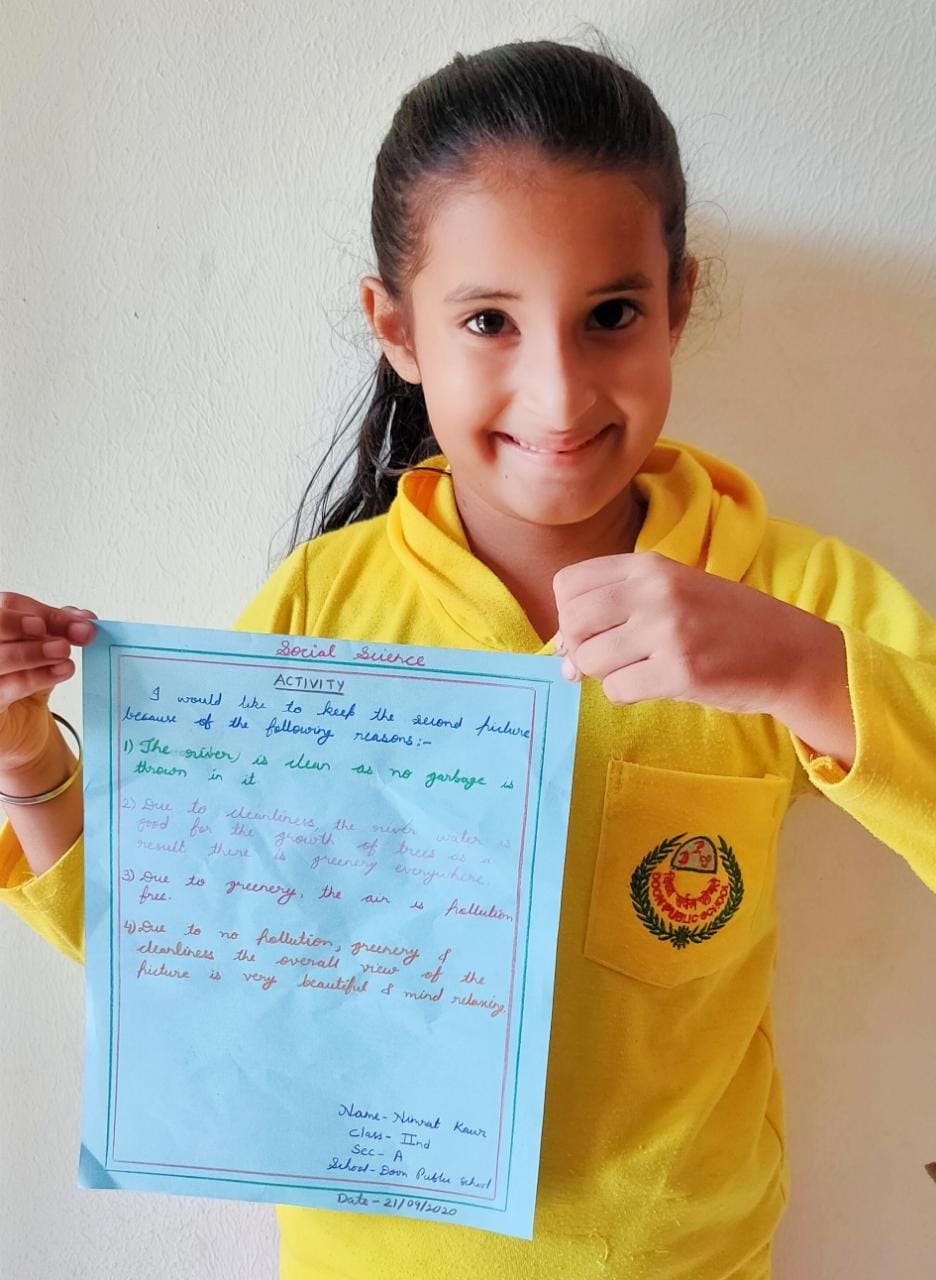 Social Science
ACTIVITY
I would like to keep the second picture
because of the following reasons:-
1) The river, is clean as no garbage is
thrown in it
2) Due to cleanliness, the river water is
good for the growth of trees as a
result there is greenery everywhere.
3) Due to greenery, the air is pollution
free.
4) Due to no pollution, greenery &
cleanliness the overall view of the
picture is very beautiful & mind relaxing.
Name- Nimrat Kaur
Class- IInd
Sec- A
School- Doon Public School
Date - 21/09/2020
DOON PUBLIC SCHOOL